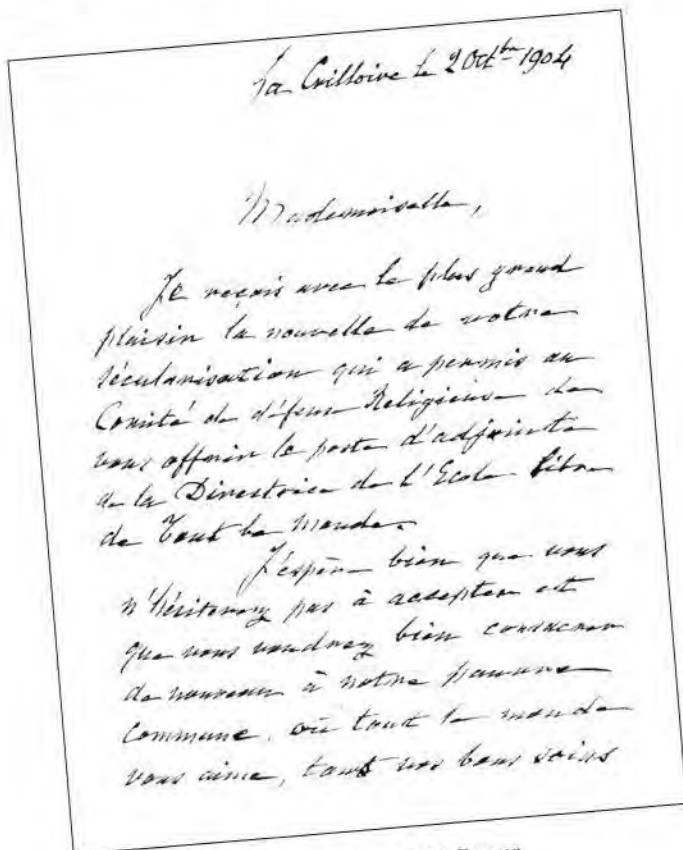 La Crilloire le 2 Octbre 1904
Mademoiselle,
Je reçois avec le plus grand
plaisir la nouvelle de votre
sécularisation qui a permis au
Comité de défense Religieuse de
vous offrir le poste d'adjointe
de la Directrice de l'Ecole libre
de Tout le Monde.
J'espère bien que vous
n'hésiterez pas à accepter et
que vous voudrez bien consacrer
de nouveau à notre pauvre
Commune, où tout le monde
vous aime, tous vos bons soins